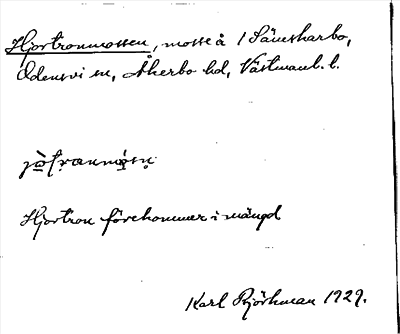 Hjortronmossen, mosse å 1 Sänesharbo,
Odensvi sn, Åkerbo hd, Västmanl. l.
Hjortron förekommer i mängd
Karl Björkman 1929.